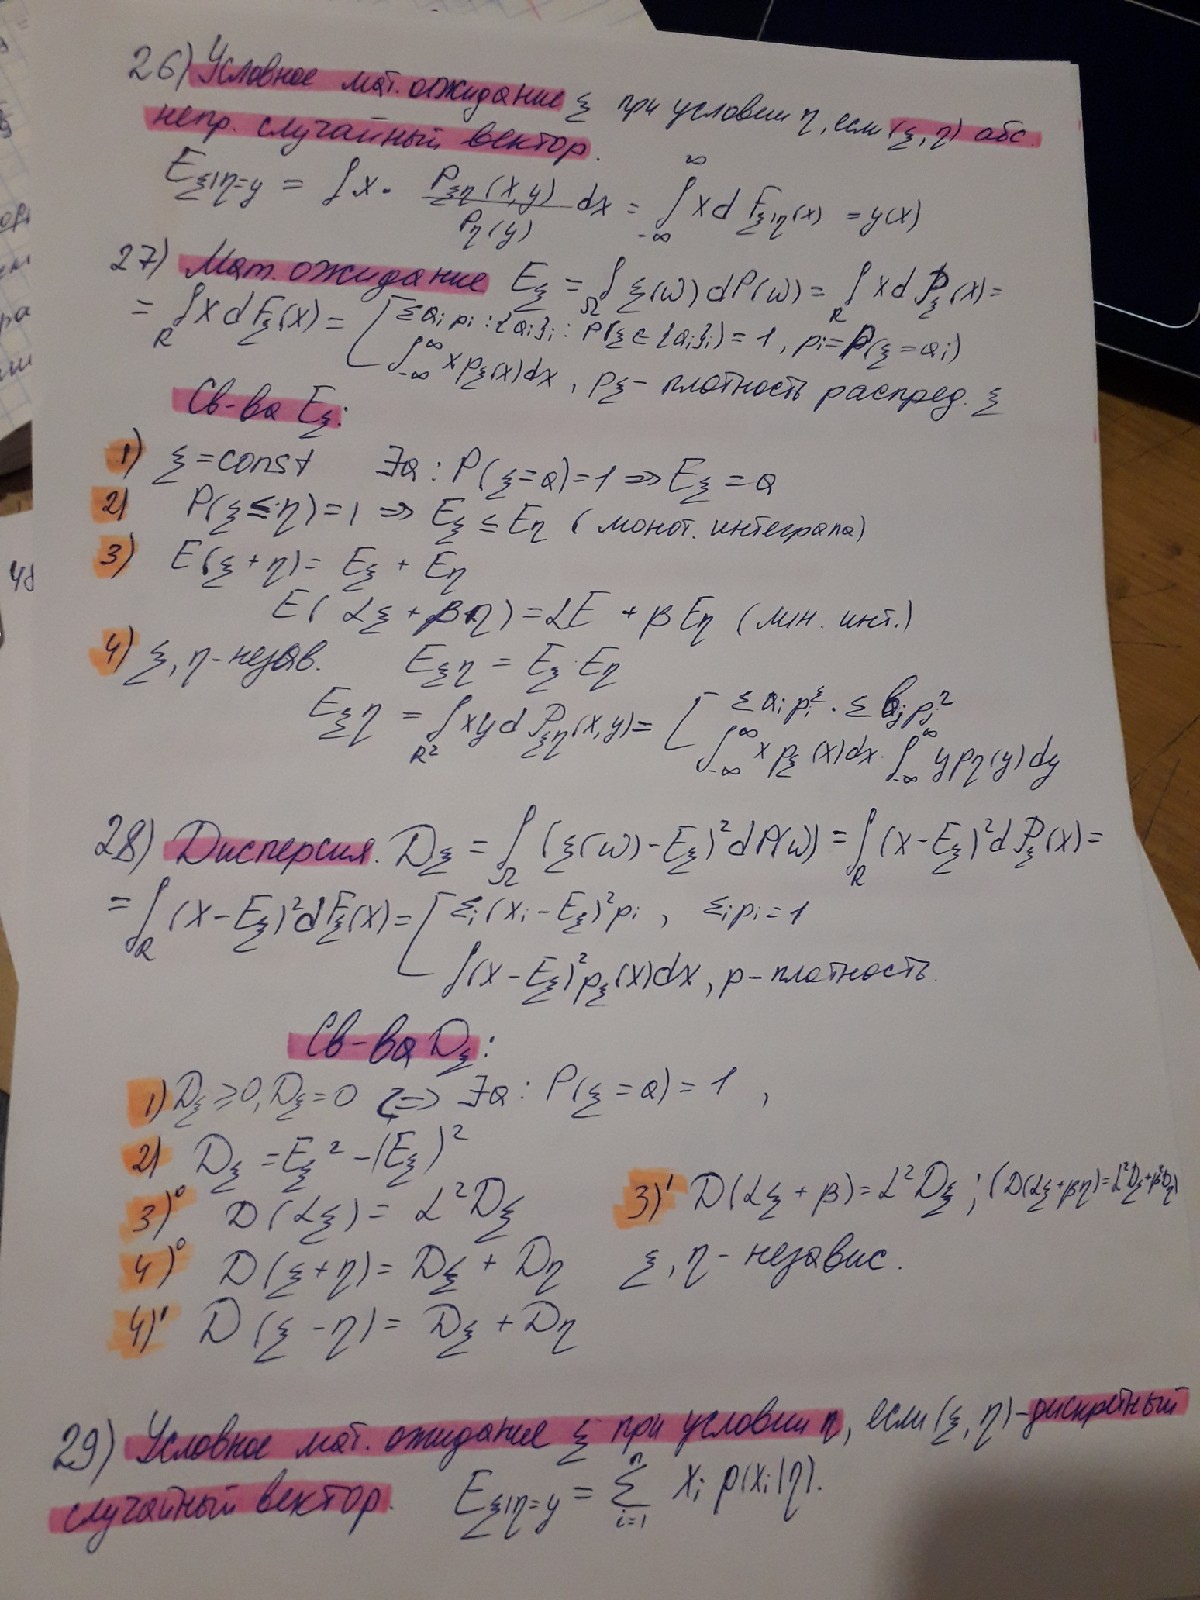 26) Условное мат. ожидание ξ при условии η, если (ξ, η) абс.
непр. случайный вектор.
E ξ|η=y = ∫ x · p ξη (x,y) / p η (y) dx = ∫_{-∞}^{∞} x d F ξ|η (x) = y(x)
27) Мат. ожидание Eξ = ∫_Ω ξ(ω) dP(ω) = ∫_R x d P ξ (x) =
= ∫_R x d F ξ (x) = [ Σ a_i p_i : {a_i}_i : P(ξ ∈ {a_i}_i) = 1, p_i = P(ξ = a_i)
∫_{-∞}^{∞} x p ξ (x) dx, p ξ – плотность распред. ξ
Св-ва Eξ:
1) ξ = const ∃a : P(ξ = a) = 1 ⇒ Eξ = a
2) P(ξ ≤ η) = 1 ⇒ Eξ ≤ Eη (монот. интеграла)
3) E(ξ + η) = Eξ + Eη
E(αξ + βη) = αE + βEη (лин. инт.)
4) ξ, η - незав. Eξη = Eξ · Eη
Eξη = ∫_{R²} xy d P ξη (x,y) = [ Σ a_i p_i^ξ · Σ b_j p_j^2
∫_{-∞}^{∞} x p ξ (x) dx · ∫_{-∞}^{∞} y p η (y) dy
28) Дисперсия. Dξ = ∫_Ω (ξ(ω) - Eξ)² dP(ω) = ∫_R (x - Eξ)² d P ξ (x) =
= ∫_R (x - Eξ)² d F ξ (x) = [ Σ_i (x_i - Eξ)² p_i, Σ_i p_i = 1
∫ (x - Eξ)² p ξ (x) dx, p - плотность
Св-ва Dξ:
1) Dξ ≥ 0, Dξ = 0 ⇔ ∃a : P(ξ = a) = 1 ,
2) Dξ = Eξ² - (Eξ)²
3)⁰ D(αξ) = α² Dξ 3)' D(αξ + β) = α² Dξ ; (D(αξ + βη) = α² Dξ + β² Dη)
4)⁰ D(ξ + η) = Dξ + Dη ξ, η - независ.
4)' D(ξ - η) = Dξ + Dη
29) Условное мат. ожидание ξ при условии η, если (ξ, η) - дискретный
случайный вектор. E ξ|η=y = Σ_{i=1}^{n} x_i p(x_i|η).